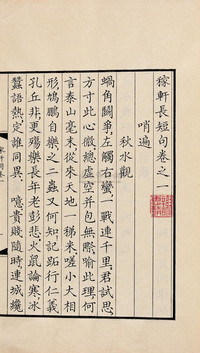 稼軒長短句卷之一
哨遍
秋水觀
蝸角鬬爭左觸右蠻一戰連千里君試思
方寸此心微總虛空并包無際喻此理何
言泰山毫末從來天地一稊米嗟小大相
形鳩鵬自樂之二蟲又何知記跖行仁義
孔丘非更殤樂長年老彭悲火鼠論寒冰
蠶語熱定誰同異　噫貴賤隨時連城纔